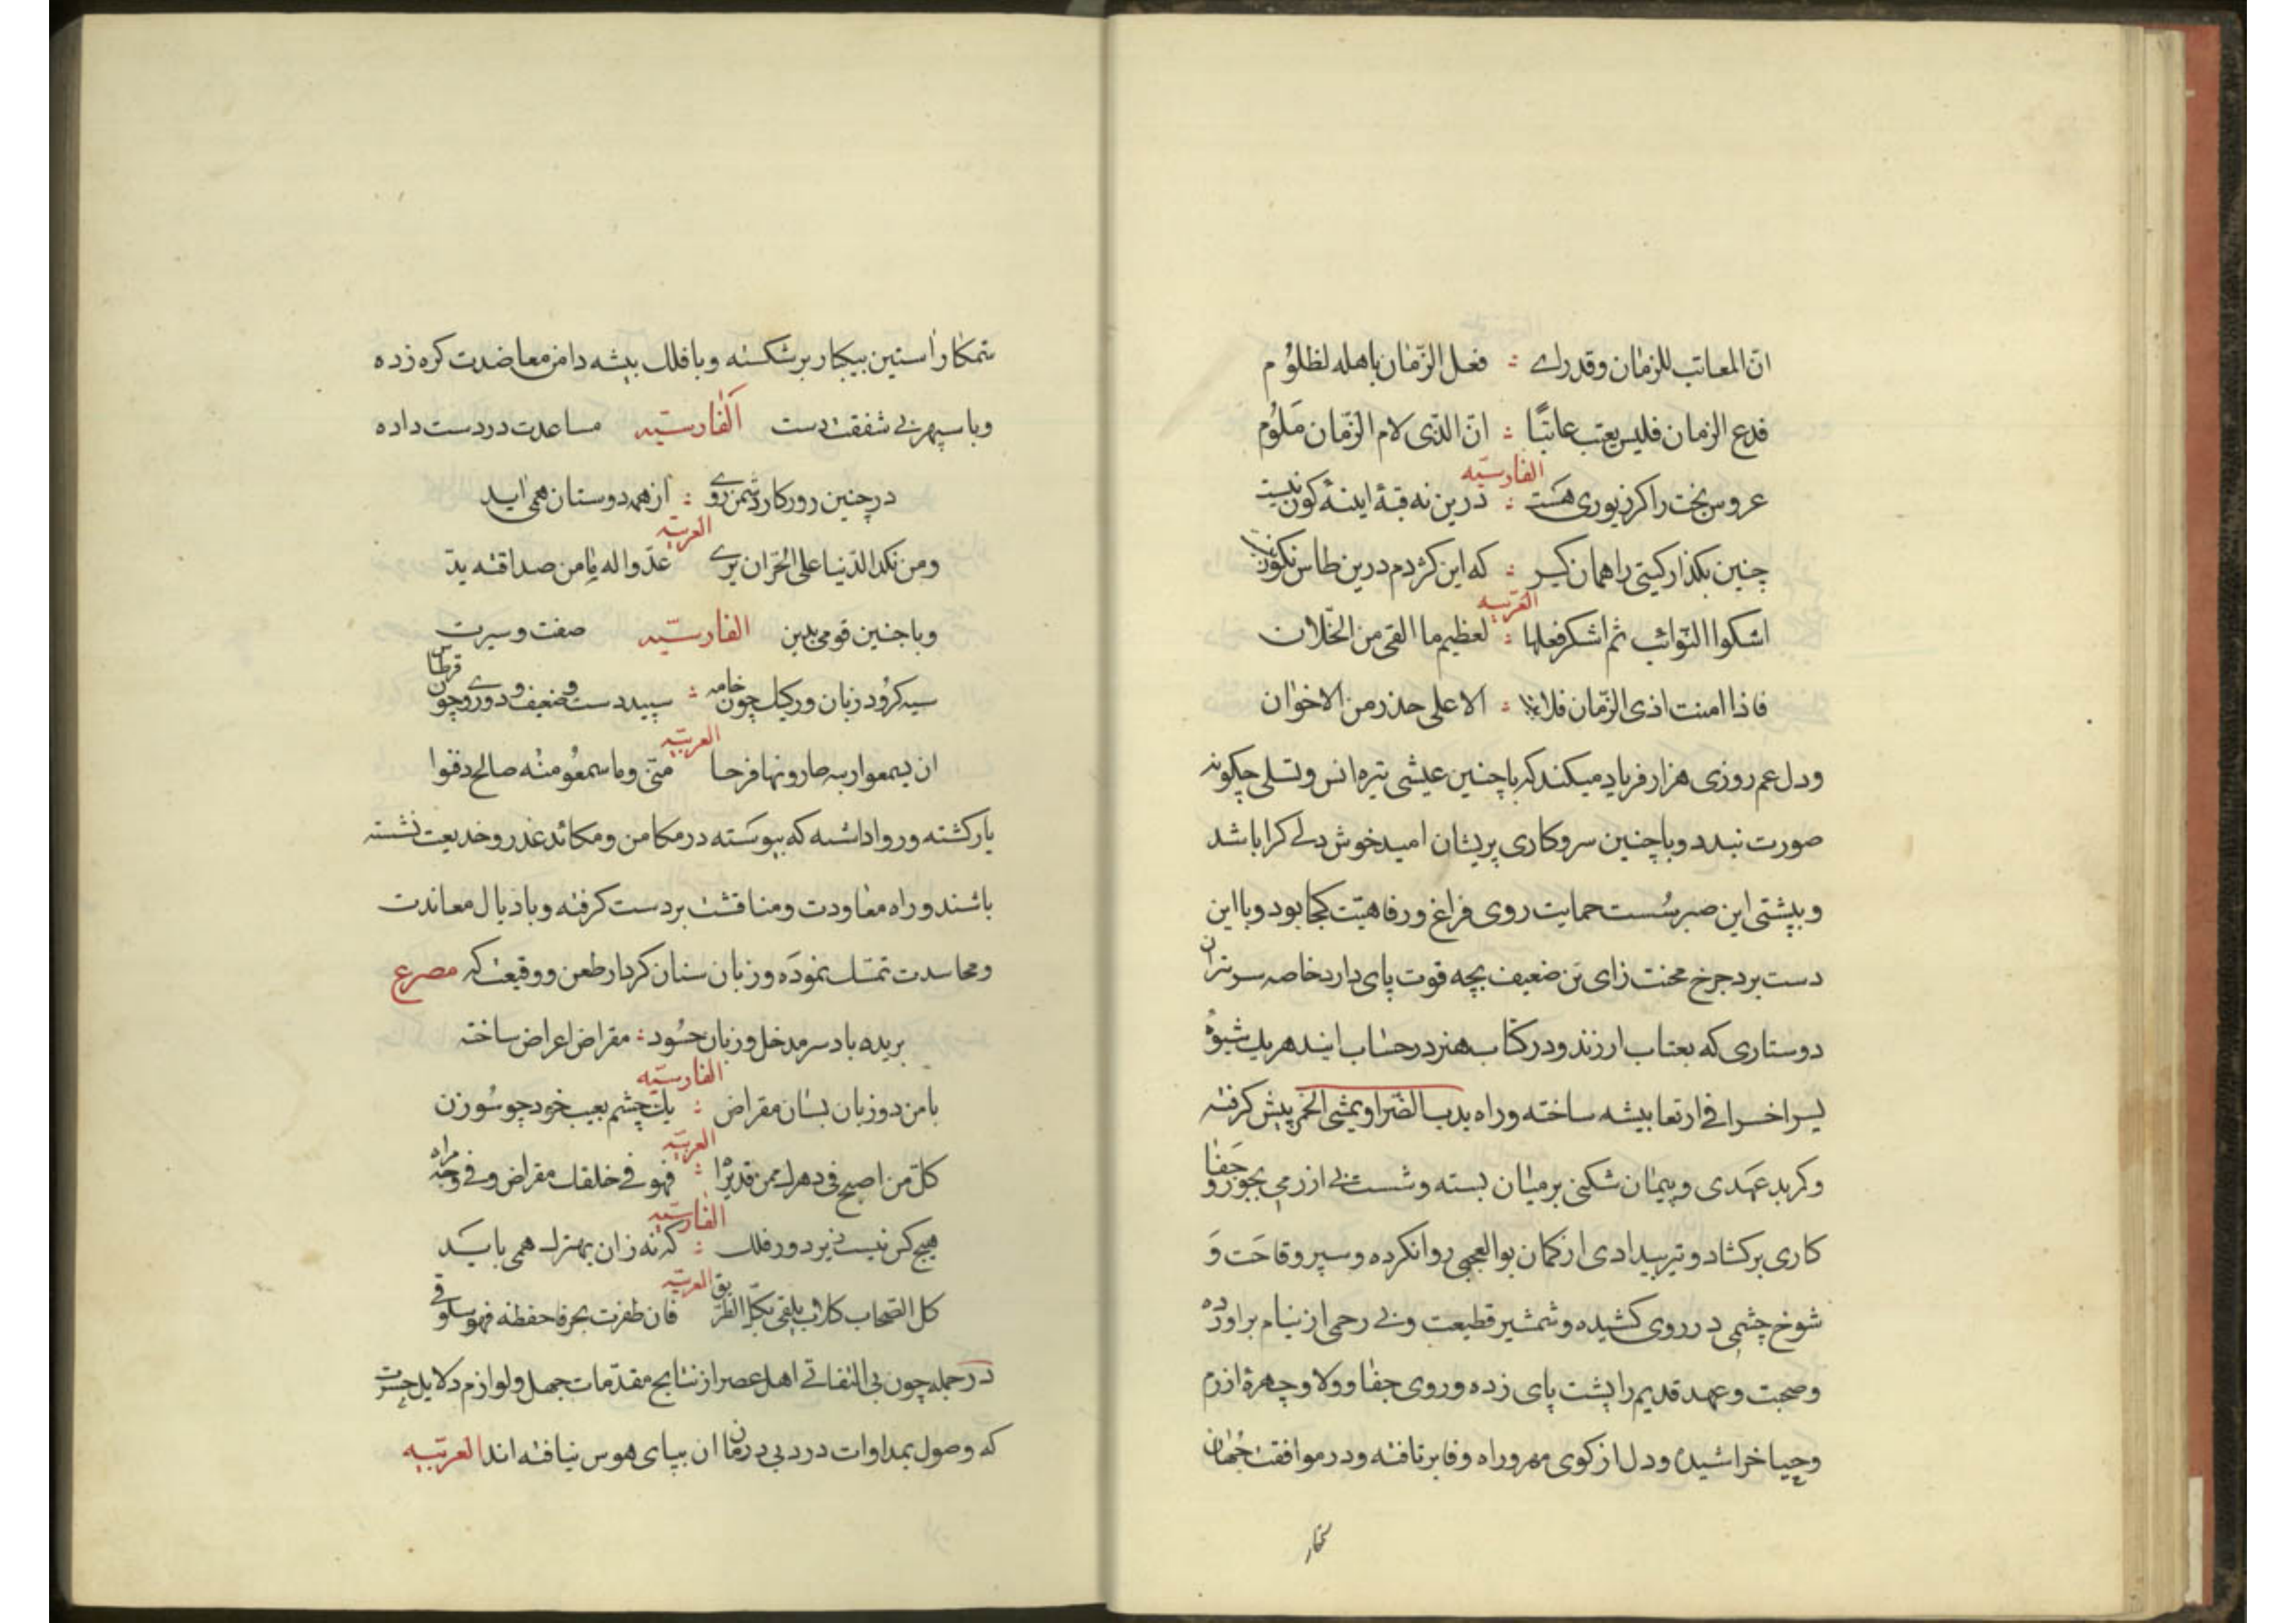 انّ المعاتب للزمان وقد رای : فعل الزّمان باهله لظلوم
فدع الزمان فلیس یعتب عاتبًا : انّ الذی لام الزّمان مَلوُم
الفارسیّه
عروس بخت را کر زیوری هست : درین نه قبهٔ اینهٔ کون نیست
چنین بکذار کیتی را همان کیر : که این کژدم درین طاس نکون
العربیه
اشکوا النّوائب ثم اشکر فعلها : لعظیم ما القی من الخلّان
فاذا امنت اذی الزّمان فلا : الا علی حذر من الاخوان
و دل عم روزی هزار فریاد میکند که با چنین عیشی تیره انس و تسلی چکونه
صورت نبدد و با چنین سر و کاری پریشان امید خوش دلی کرا باشد
و بپشتی این صبر سُست حمایت روی فراغ و رفاهیّت کجا بود و با این
دست برد جرخ محنت زای تن ضعیف بچه قوت پای دارد خاصه سرتران
دوستاری که بعتاب ارزند و در کتاب هنر در حساب ایند هر یک شیوهٔ
یسر اخسرا فی ارتعا بیشه ساخته و راه یدب الضّرا و یمشی الخمر پیش کرفته
و کر بد عهدی و پیمان شکنی بر میان بسته و شست بی ازرمی بجور و جفا
کاری برکشاد و تیر بیدادی از کمان بوالعجمی روانکرده و سپر وقاحَت وَ
شوخ چشمی در روی کشیده و شمشیر قطیعت و بی رحمی از نیام براورده
و صحبت و عهد قدیم را پشت پای زده و روی جفا و ولا و چهرهٔ ازرم
و حیا خراشیده و دل از کوی مهر و راه وفا برتافته و در موافقت جهان
ستمکار
ستمکار راستین بیکار برشکسته و با فلک بیشه دامن معاضدت کره زده
و با سپهر بی شفقت دست الفارسیّه مساعدت در دست داده
در چنین روزکار دشمن روی : از همه دوستان همی اید
العربیّه
ومن نکد الدّنیا علی الحرّ ان یری عدّوا له یامن صداقته بدّ
و با چنین قومی بدین الفارسیّه صفت و سیرت
سیه کر و دو زبان و رکیک چون خامه : سپید دست و ضعیف و دوروی چون قرطاس
العربیّه
ان یسمعوا ریبه طاروا بها فرحا منّی وما سمعُو من صالح دفنوا
یار کشته و روا داشته که پیوَسته در مکامن و مکائد غدر و خدیعت نشسته
باشند و راه معاودت و منافثت بر دست کرفته و باذیال معاندت
و محاسدت تمسّک نمودَه و زبان سنان کردار طعن و وقیعت که مصرع
بریده باد سر مدخل و زبان حسُود : مقراض اعراض ساخته
الفارسیّه
با من دو زبان بسان مقراض : یک چشم بعیب خود چو سُوزن
العربیّه
کل من اصبح فی دهرک ممن قد ترا : فهو فی خلفک مقراض و فی وجه مراه
الفارسیّه
هیچ کس نیست زیر دور فلک : که نه زان بهترک همی بایَد
العربیّه
کل الصّحاب کلاب یلقی بکلّ الطّریق فان ظفرت بحرفاحفظه فهو سلوقی
در جمله چون بی التفاتی اهل عصر از نتایج مقدّمات جهل و لوازم دلایل حسرت
که وصول بمداوات درد بی درمان ان بپای هوس نیافته اند العربیّه